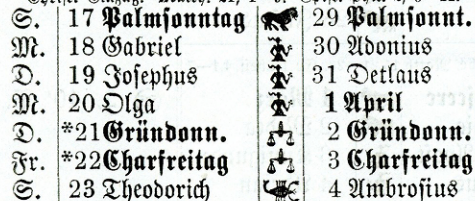 S. 17 Palmsonntag 29 Palmsonnt.
M. 18 Gabriel 30 Adonius
D. 19 Josephus 31 Detlaus
M. 20 Olga 1 April
D. *21 Gründonn. 2 Gründonn.
Fr. *22 Charfreitag 3 Charfreitag
S. 23 Theodorich 4 Ambrosius